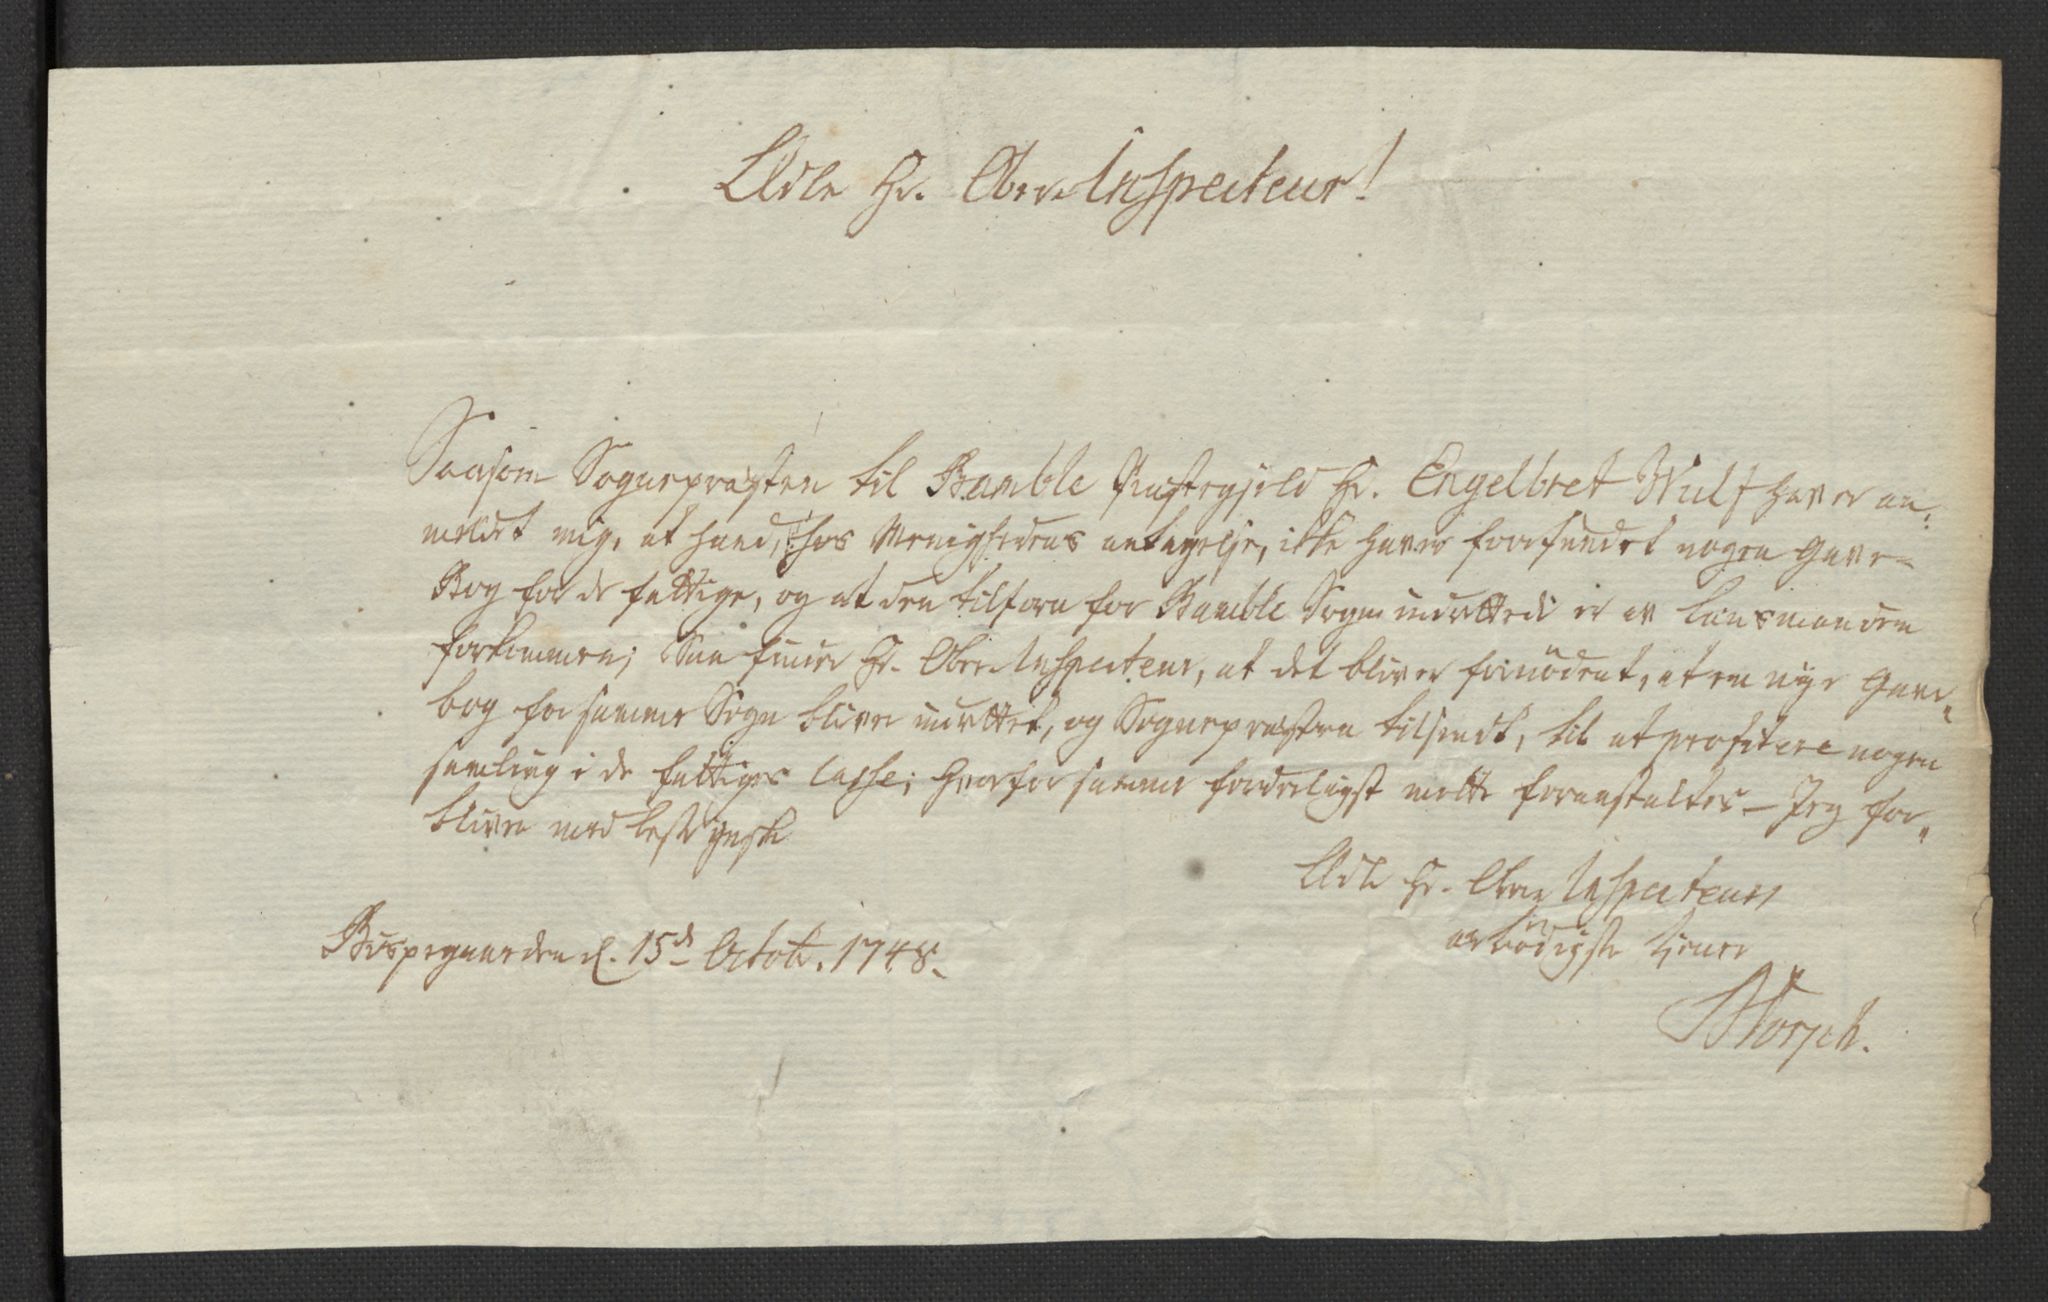 Ædle Hr. Ober Inspecteur!
Saasom Sognepræsten til Bamble Præstegjeld Hr. Engelbret Wulf haver an-
meldet mig, at hand, hos Menighedens antagelse, ikke haver forefundet nogen Gave-
Bog for de fattige, og at den tilforn for Bamble Sogn indrettede er av Lænsmanden
forkommen; Saa finder Hr. Ober Inspecteur, at det bliver fornödent, at en nye Gave-
bog for samme Sogn bliver indrettet, og Sognepræsten tilsendt, til at profitere nogen
samling i de fattiges Casse; hvorfor samme forderligst motte foranstaltes – Jeg for-
bliver med best ynske
Ædle Hr. Ober Inspecteurs
ærbödigste tiener
Bispegaarden d. 15de Octobr. 1748.
Storsch.